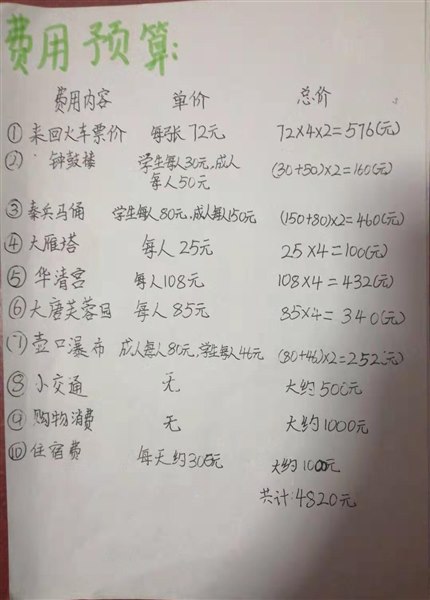 费用预算:
费用内容 单价 总价
① 来回火车票价 每张72元 72×4×2=576(元)
② 钟鼓楼 学生每人30元,成人每人50元 (30+50)×2=160(元)
③ 秦兵马俑 学生每人80元,成人每人150元 (150+80)×2=460(元)
④ 大雁塔 每人25元 25×4=100(元)
⑤ 华清宫 每人108元 108×4=432(元)
⑥ 大唐芙蓉园 每人85元 85×4=340(元)
⑦ 壶口瀑布 成人每人80元,学生每人46元 (80+46)×2=252(元)
⑧ 小交通 无 大约500元
⑨ 购物消费 无 大约1000元
⑩ 住宿费 每天约305元 大约1000元
共计:4820元